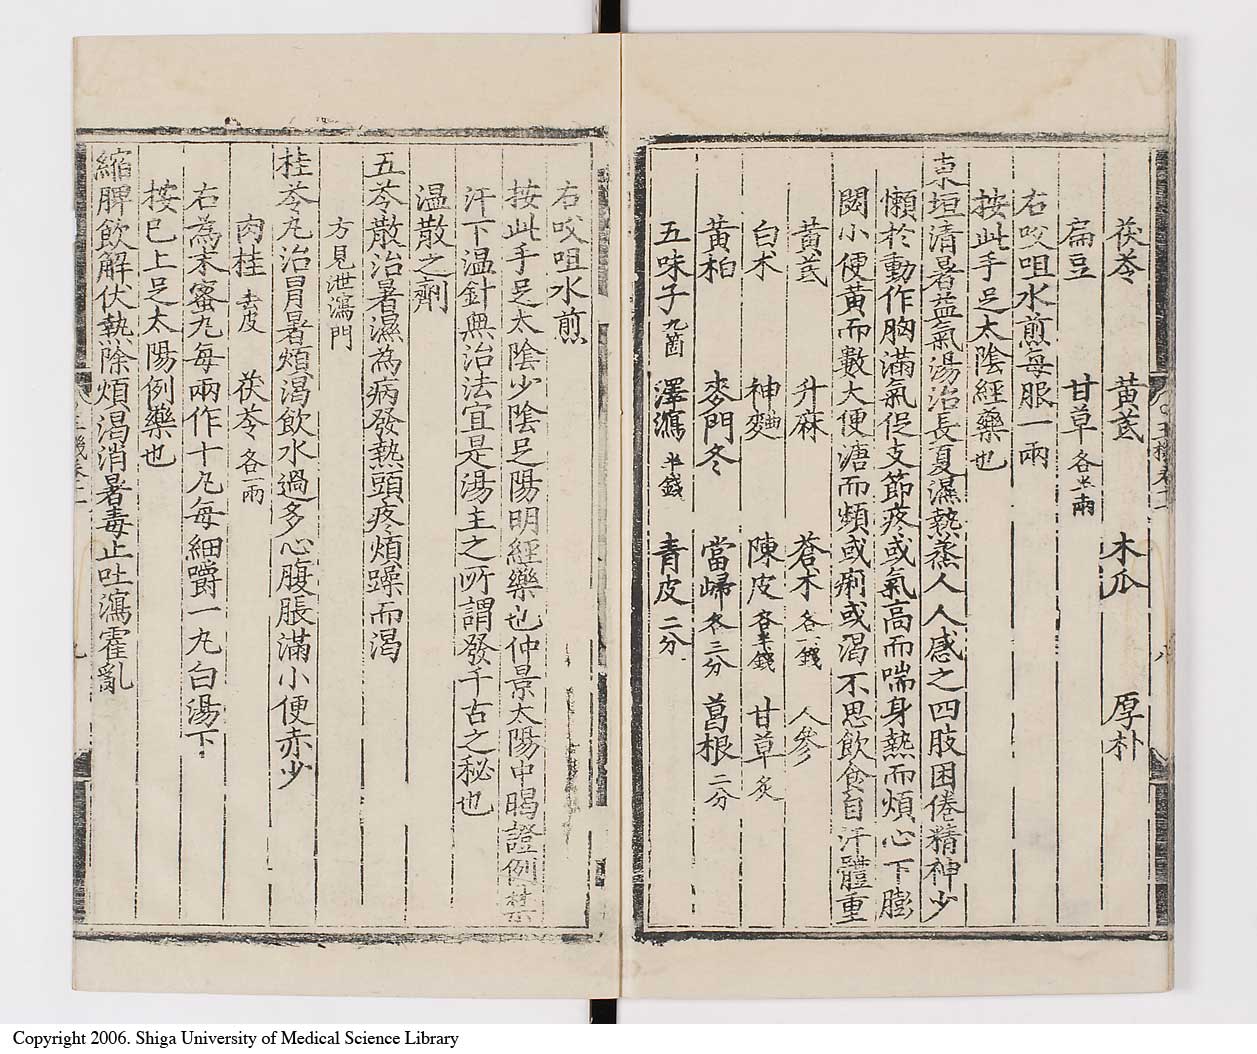 茯苓　黃芪　木瓜　厚朴
扁豆　甘草各半兩
右㕮咀水煎每服一兩
按此手足太陰經藥也
東垣清暑益氣湯治長夏濕熱蒸人人感之四肢困倦精神少
懶於動作胸滿氣促支節疼或氣高而喘身熱而煩心下膨
閟小便黃而數大便溏而頻或痢或渴不思飲食自汗體重
黃芪　升麻　蒼朮各一錢　人參
白朮　神麯　陳皮各半錢　甘草炙
黃柏　麥門冬　當歸各三分　葛根二分
五味子九箇　澤瀉半錢　青皮二分
右㕮咀水煎
按此手足太陰少陰足陽明經藥也仲景太陽中暍證例禁
汗下温針無治法宜是湯主之所謂發千古之秘也
温散之劑
五苓散治暑濕為病發熱頭疼煩躁而渴
方見泄瀉門
桂苓丸治冒暑煩渴飲水過多心腹脹滿小便赤少
肉桂去皮　茯苓各一兩
右為末蜜丸每兩作十丸每細嚼一丸白湯下
按已上足太陽例藥也
縮脾飲解伏熱除煩渴消暑毒止吐瀉霍亂
Copyright 2006. Shiga University of Medical Science Library